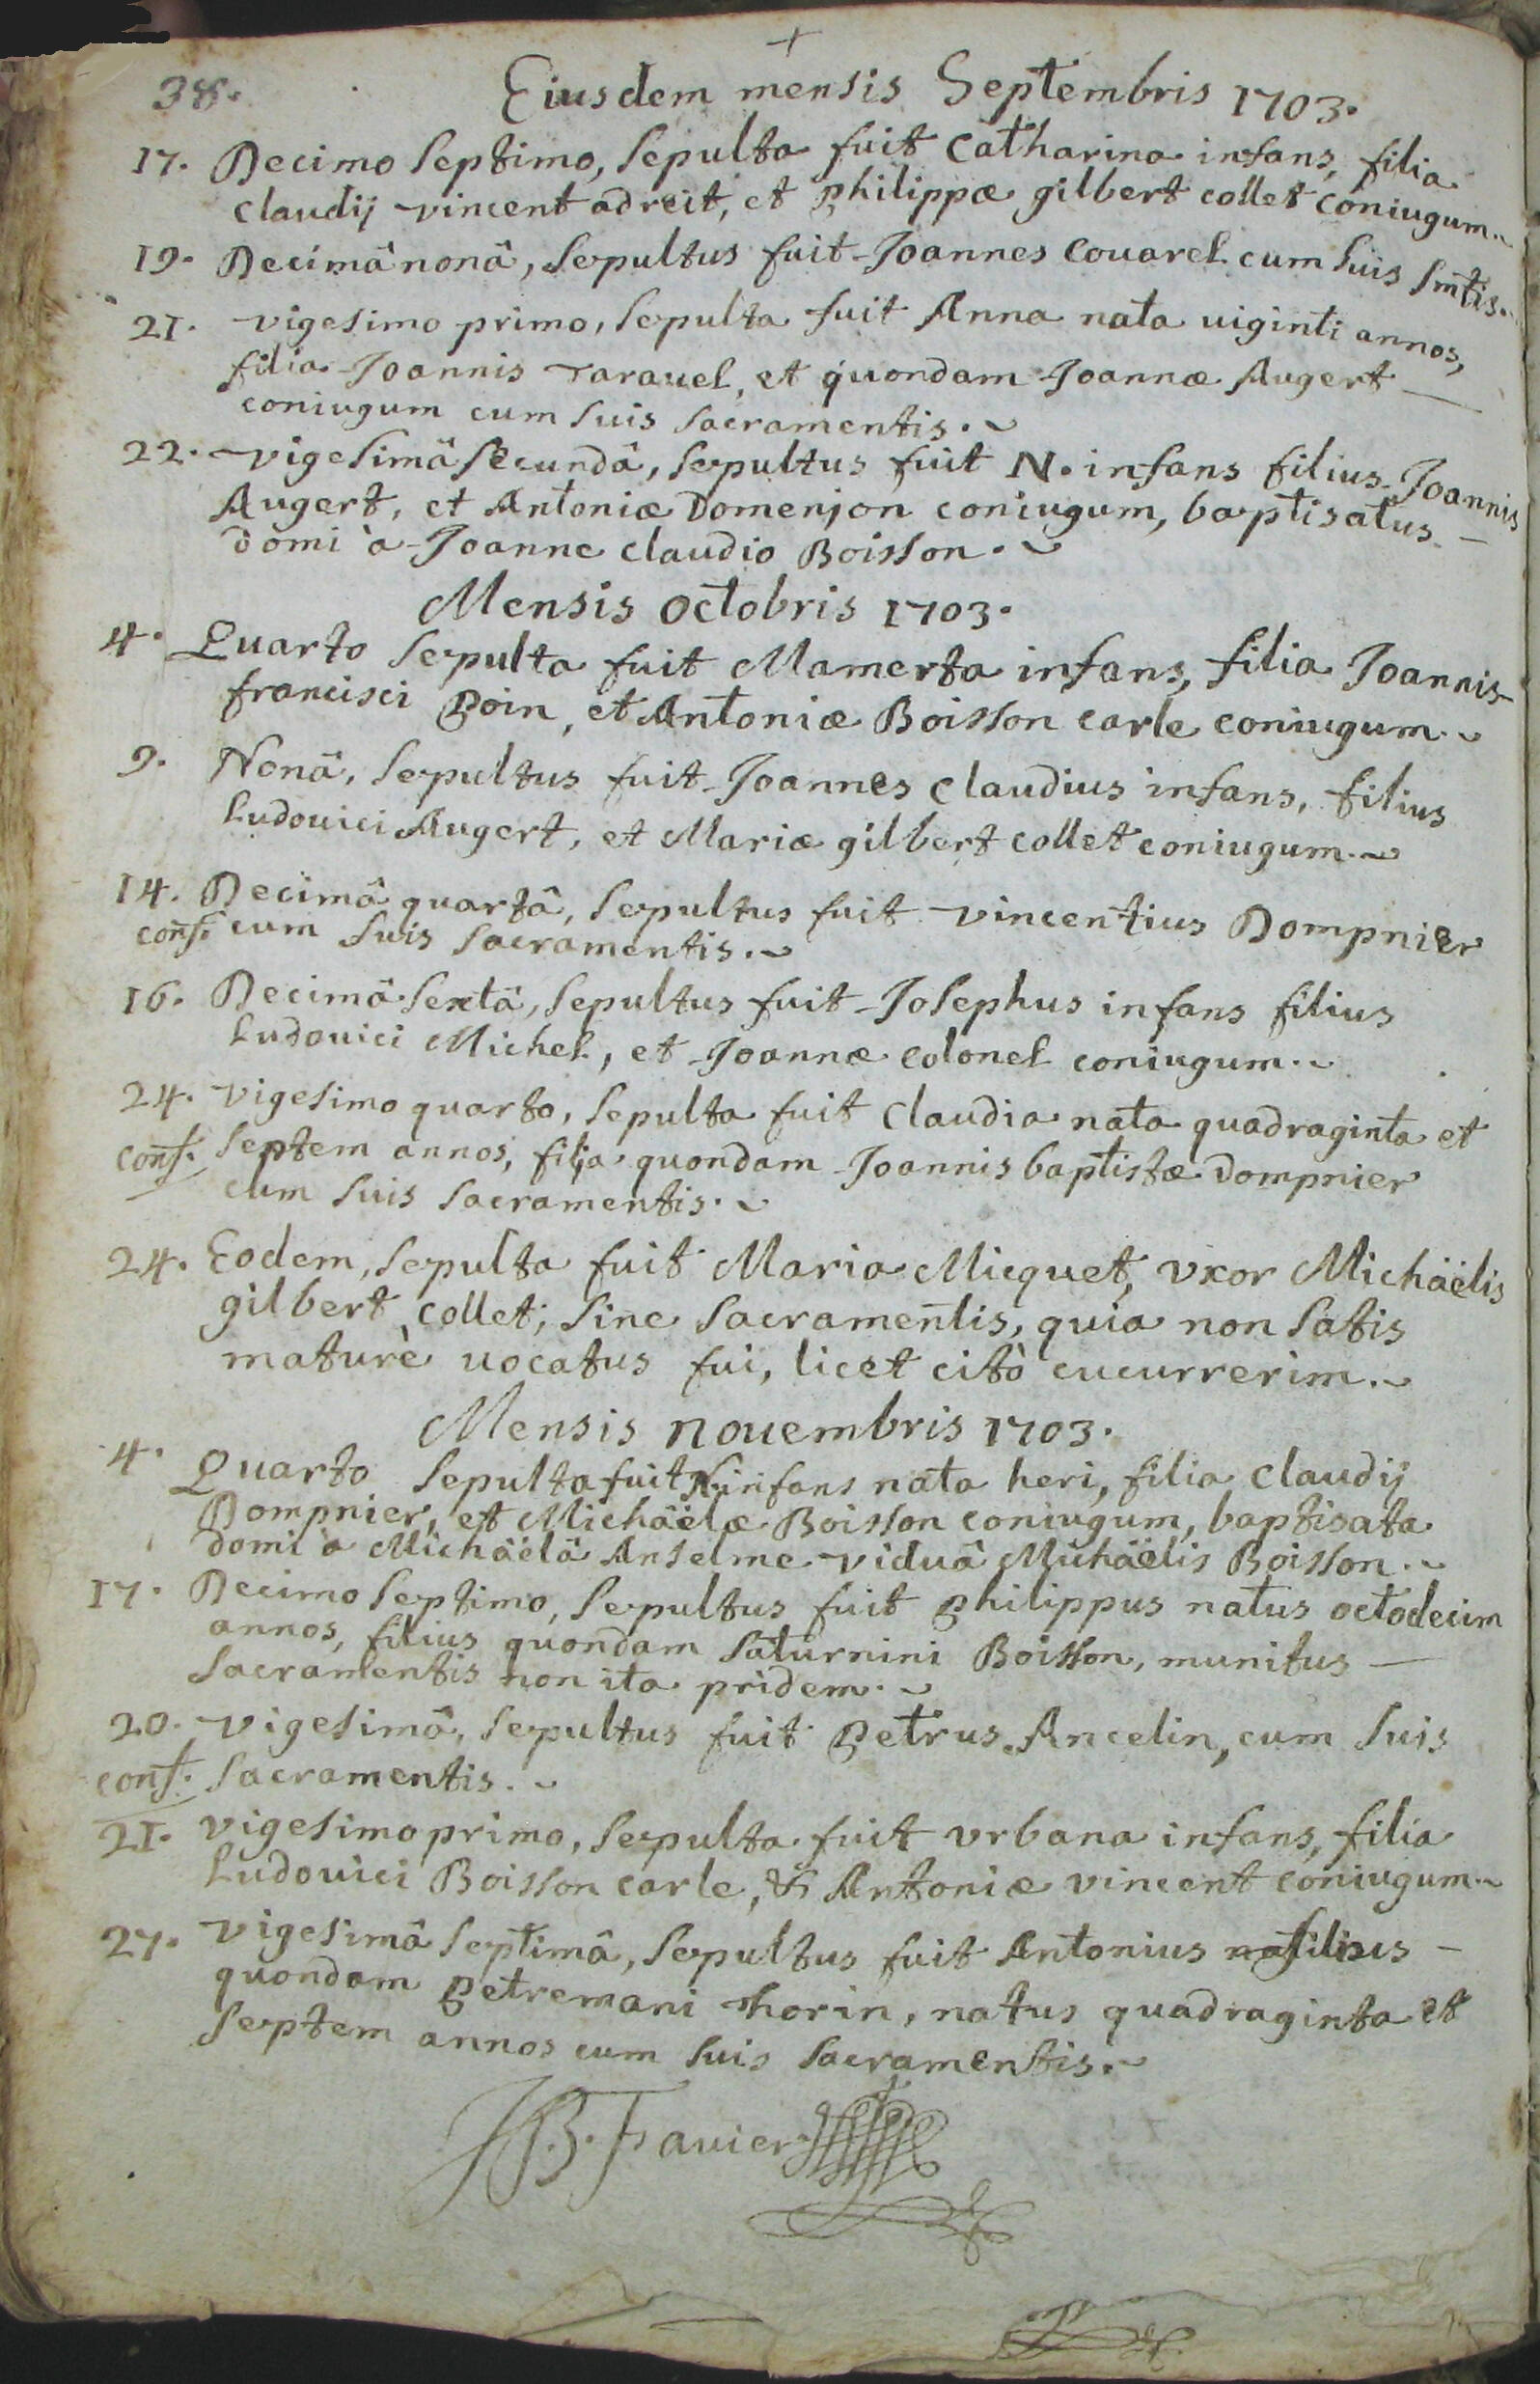 +
38.
Eiusdem mensis Septembris 1703.
17. Decimo septimo, sepulta fuit Catharina infans, filia
claudij vincent adreit, et philippæ gilbert collet coniugum.
19. Decimâ nonâ, sepultus fuit Joannes Couarel cum suis smtis.
21. vigesimo primo, sepulta fuit Anna nata uiginti annos,
filia Joannis Tarauel, et quondam Joannæ Augert
coniugum cum suis sacramentis.
22. vigesimâ secundâ, sepultus fuit N. infans filius Joannis
Augert, et Antoniæ Domenjon coniugum, baptisatus
domi à Joanne claudio Boisson.
Mensis octobris 1703.
4. Quarto sepulta fuit Mamerta infans, filia Joannis
francisci Boin, et Antoniæ Boisson carle coniugum.
9. Nonâ, sepultus fuit Joannes claudius infans, filius
Ludouici Augert, et Mariæ gilbert collet coniugum.
14. Decimâ quartâ, sepultus fuit vincentius Dompnier
conf. cum suis sacramentis.
16. Decimâ sextâ, sepultus fuit Josephus infans filius
Ludouici Michel, et Joannæ colonel coniugum.
24. vigesimo quarto, sepulta fuit claudia nata quadraginta et
conf. septem annos, filia quondam Joannis baptistæ Dompnier
cum suis sacramentis.
24. Eodem, sepulta fuit Maria Micquet, vxor Michäelis
gilbert collet; sine sacramentis, quia non satis
maturè uocatus fui, licet citò cucurrerim.
Mensis nouembris 1703.
4. Quarto sepulta fuit N. infans nata heri, filia claudij
Dompnier, et Michäelæ Boisson coniugum, baptisata
domi à Michäelâ Anselme viduâ Michäelis Boisson.
17. Decimo septimo, sepultus fuit philippus natus octodecim
annos, filius quondam saturnini Boisson, munitus
sacramentis non ita pridem.
20. vigesimâ, sepultus fuit petrus Ancelin, cum suis
conf. sacramentis.
21. vigesimo primo, sepulta fuit vrbana infans, filia
Ludouici Boisson carle, & Antoniæ vincent coniugum.
27. vigesimâ septimâ, sepultus fuit Antonius filius
quondam petremani Thorin, natus quadraginta et
septem annos cum suis sacramentis.
JB. Fauier